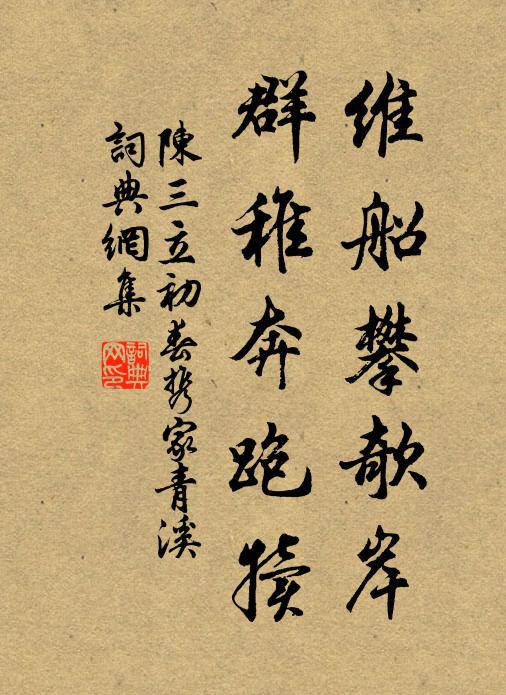 維船攀欹岸
群稚奔跑犢
陳三立初春携家青溪
詞典網集
詞典網印